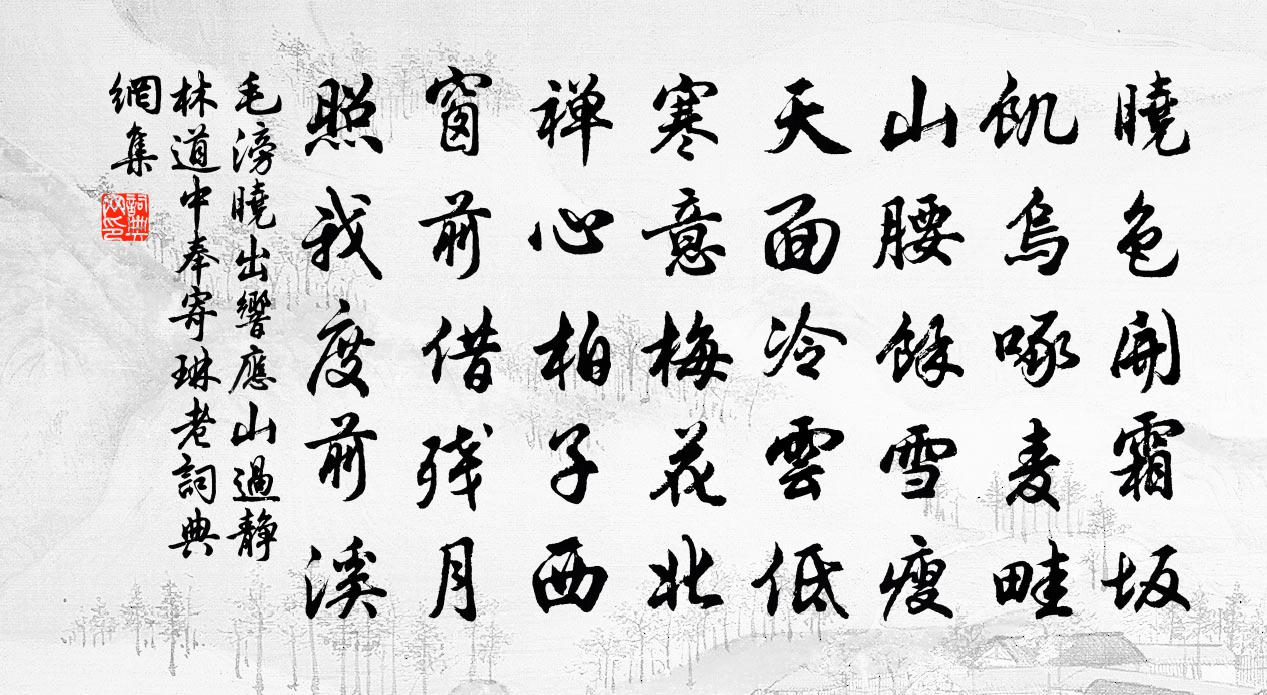 曉色開霜坂
飢烏啄麦畦
山腰餘雪瘦
天面冷雲低
寒意梅花北
禅心柏子西
窗前借残月
照我度前溪
毛滂曉出響應山過静
林道中奉寄琳老詞典
網集
詞典网印